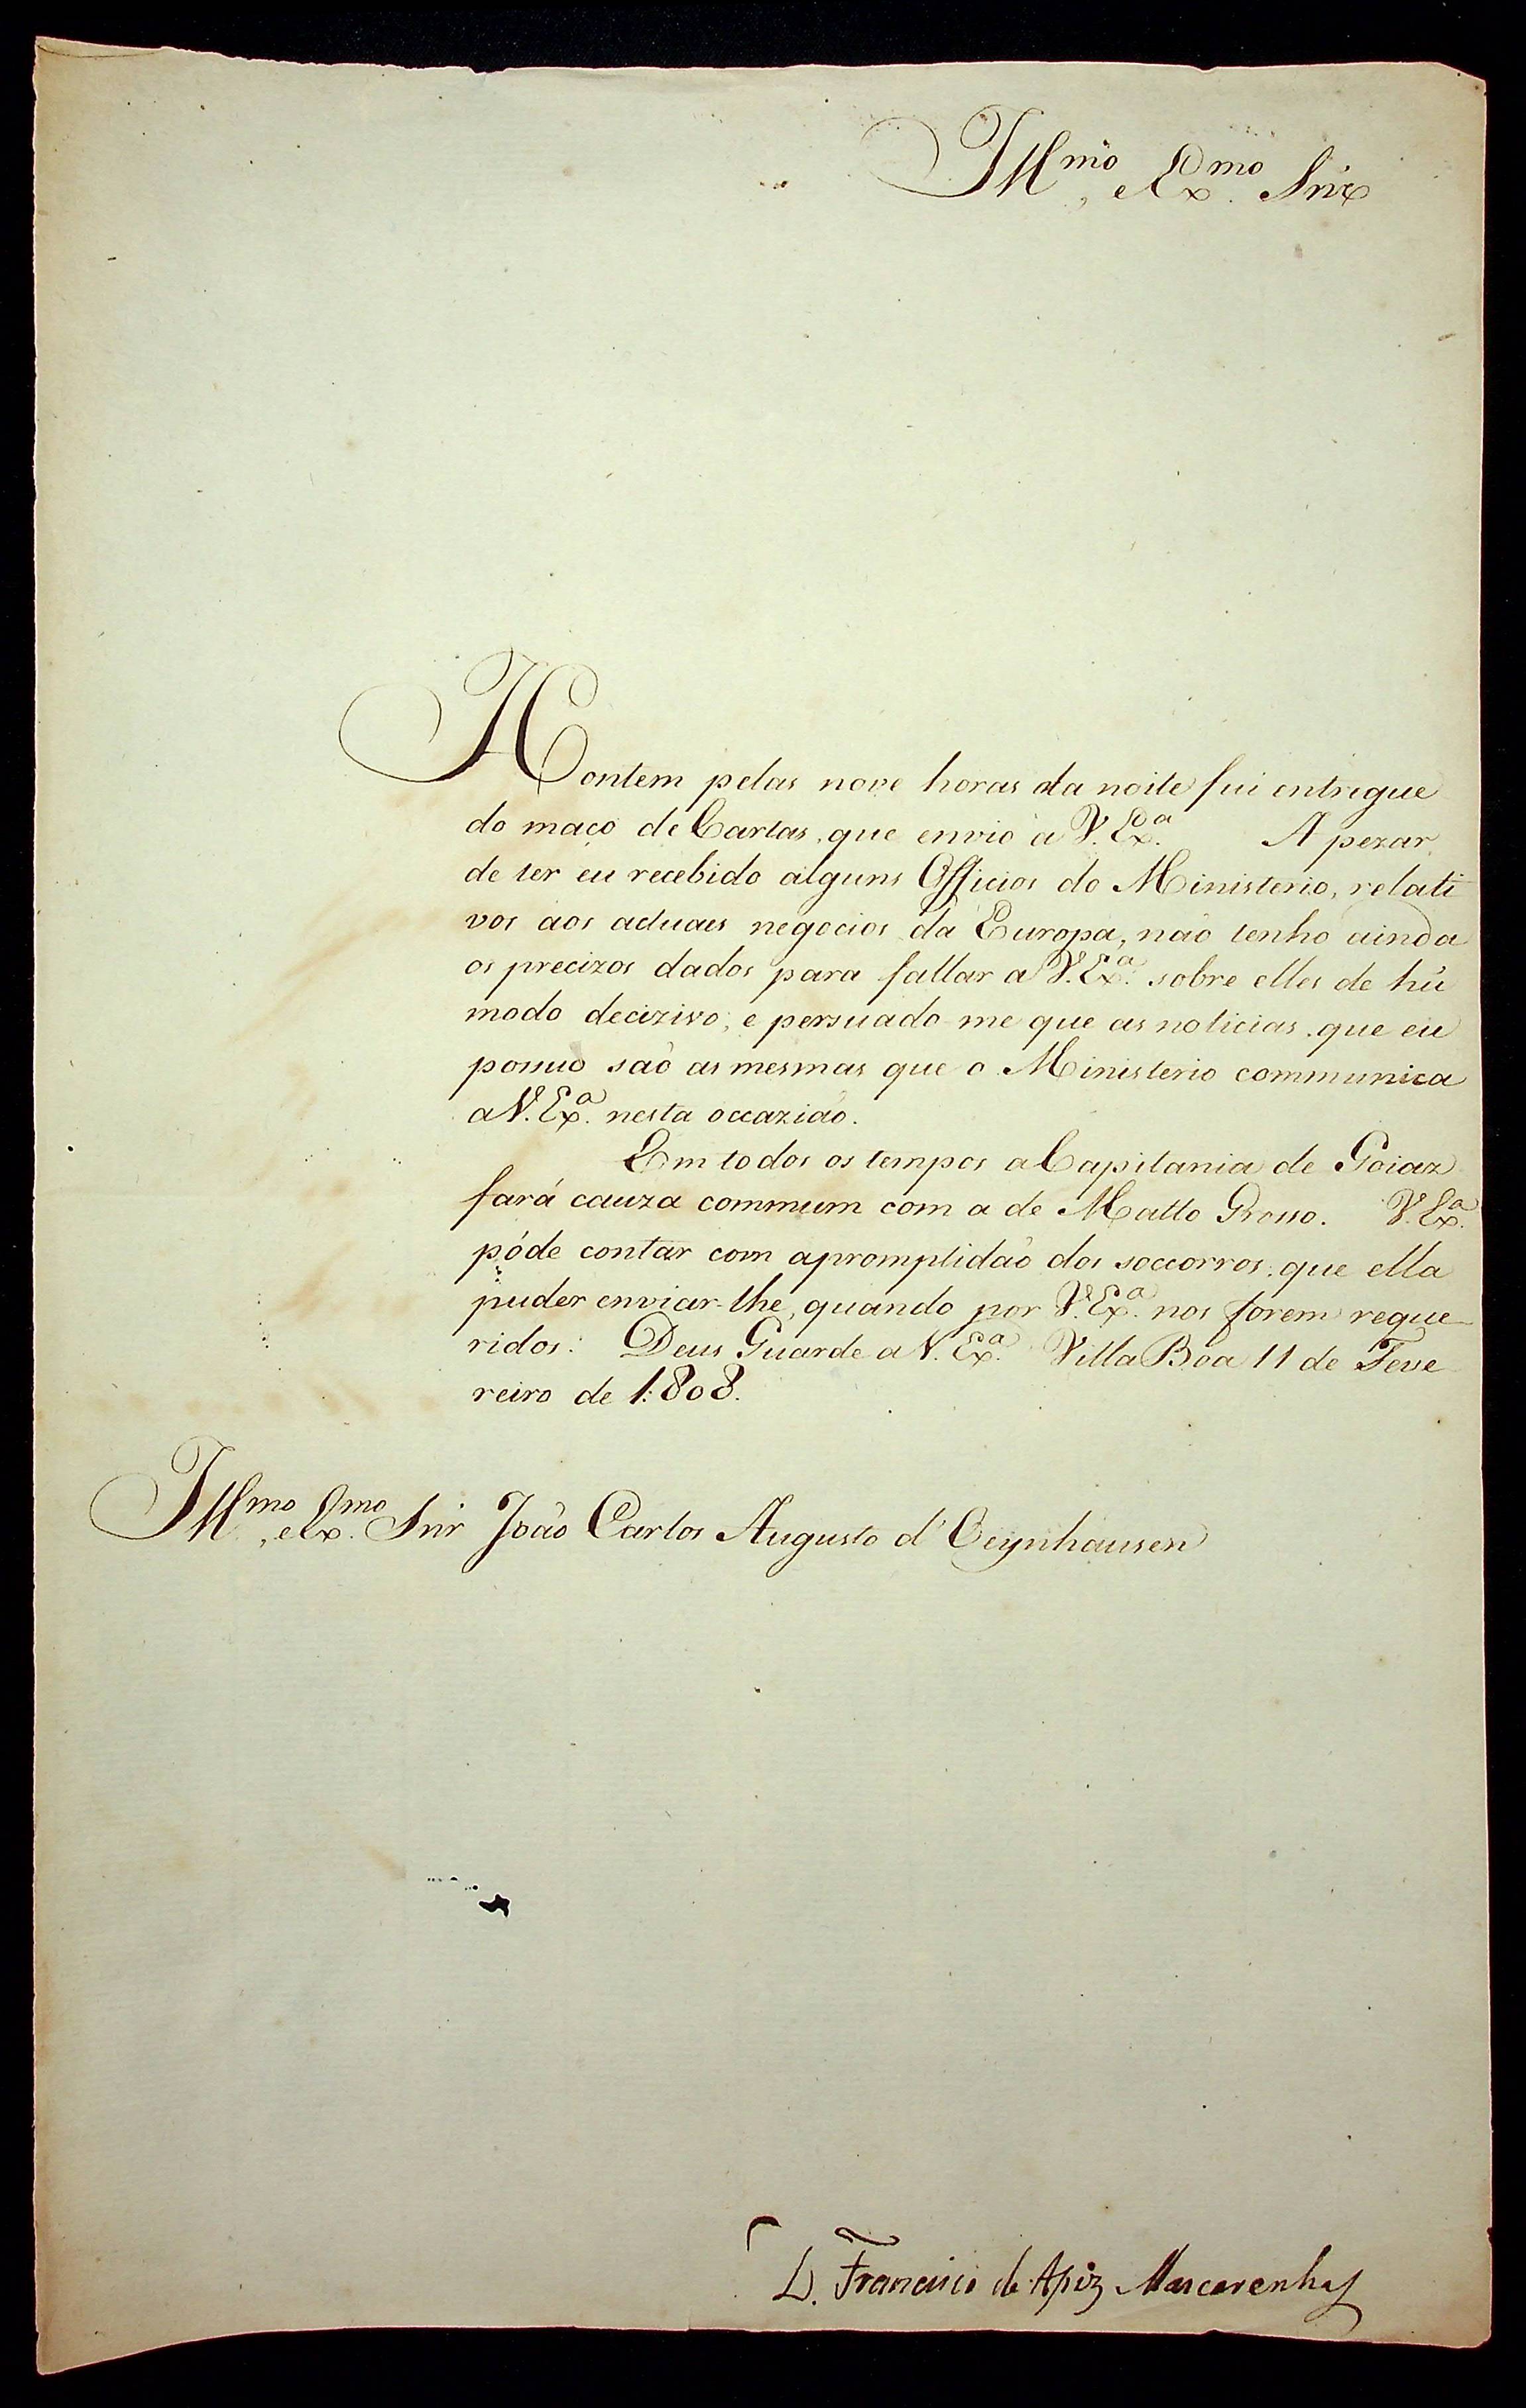 Ill.mo, e Ex.mo Snr
Hontem pelas nove horas da noite fui entregue
do maço de Cartas, que envio a V. Ex.a A pezar
de ter eu recebido alguns Officios do Ministerio, relati
vos aos actuaes negocios da Europa, não tenho ainda
os precizos dados para fallar a V. Ex.a sobre elles de hũ
modo decizivo; e persuado-me que as noticias que eu
possuo são as mesmas que o Ministerio communica
a V. Ex.a nesta occazião.
Em todos os tempos a Capitania de Goiaz
fará cauza commum com a de Matto Grosso. V. Ex.a
póde contar com a promptidão dos soccorros, que ella
puder enviar-lhe, quando por V. Ex.a nos forem reque
ridos. Deus Guarde a V. Ex.a Villa Boa 11 de Feve
reiro de 1:808.
Ill.mo, e Ex.mo Snr João Carlos Augusto d'Oeynhausen
D. Francisco de Assiz Mascarenhas